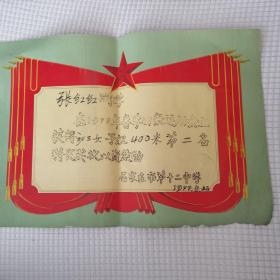 张红红同学
在1977年春季田径运动会上
获得初三女子组400米第二名
特发奖状以资鼓励
石家庄市第十二中学